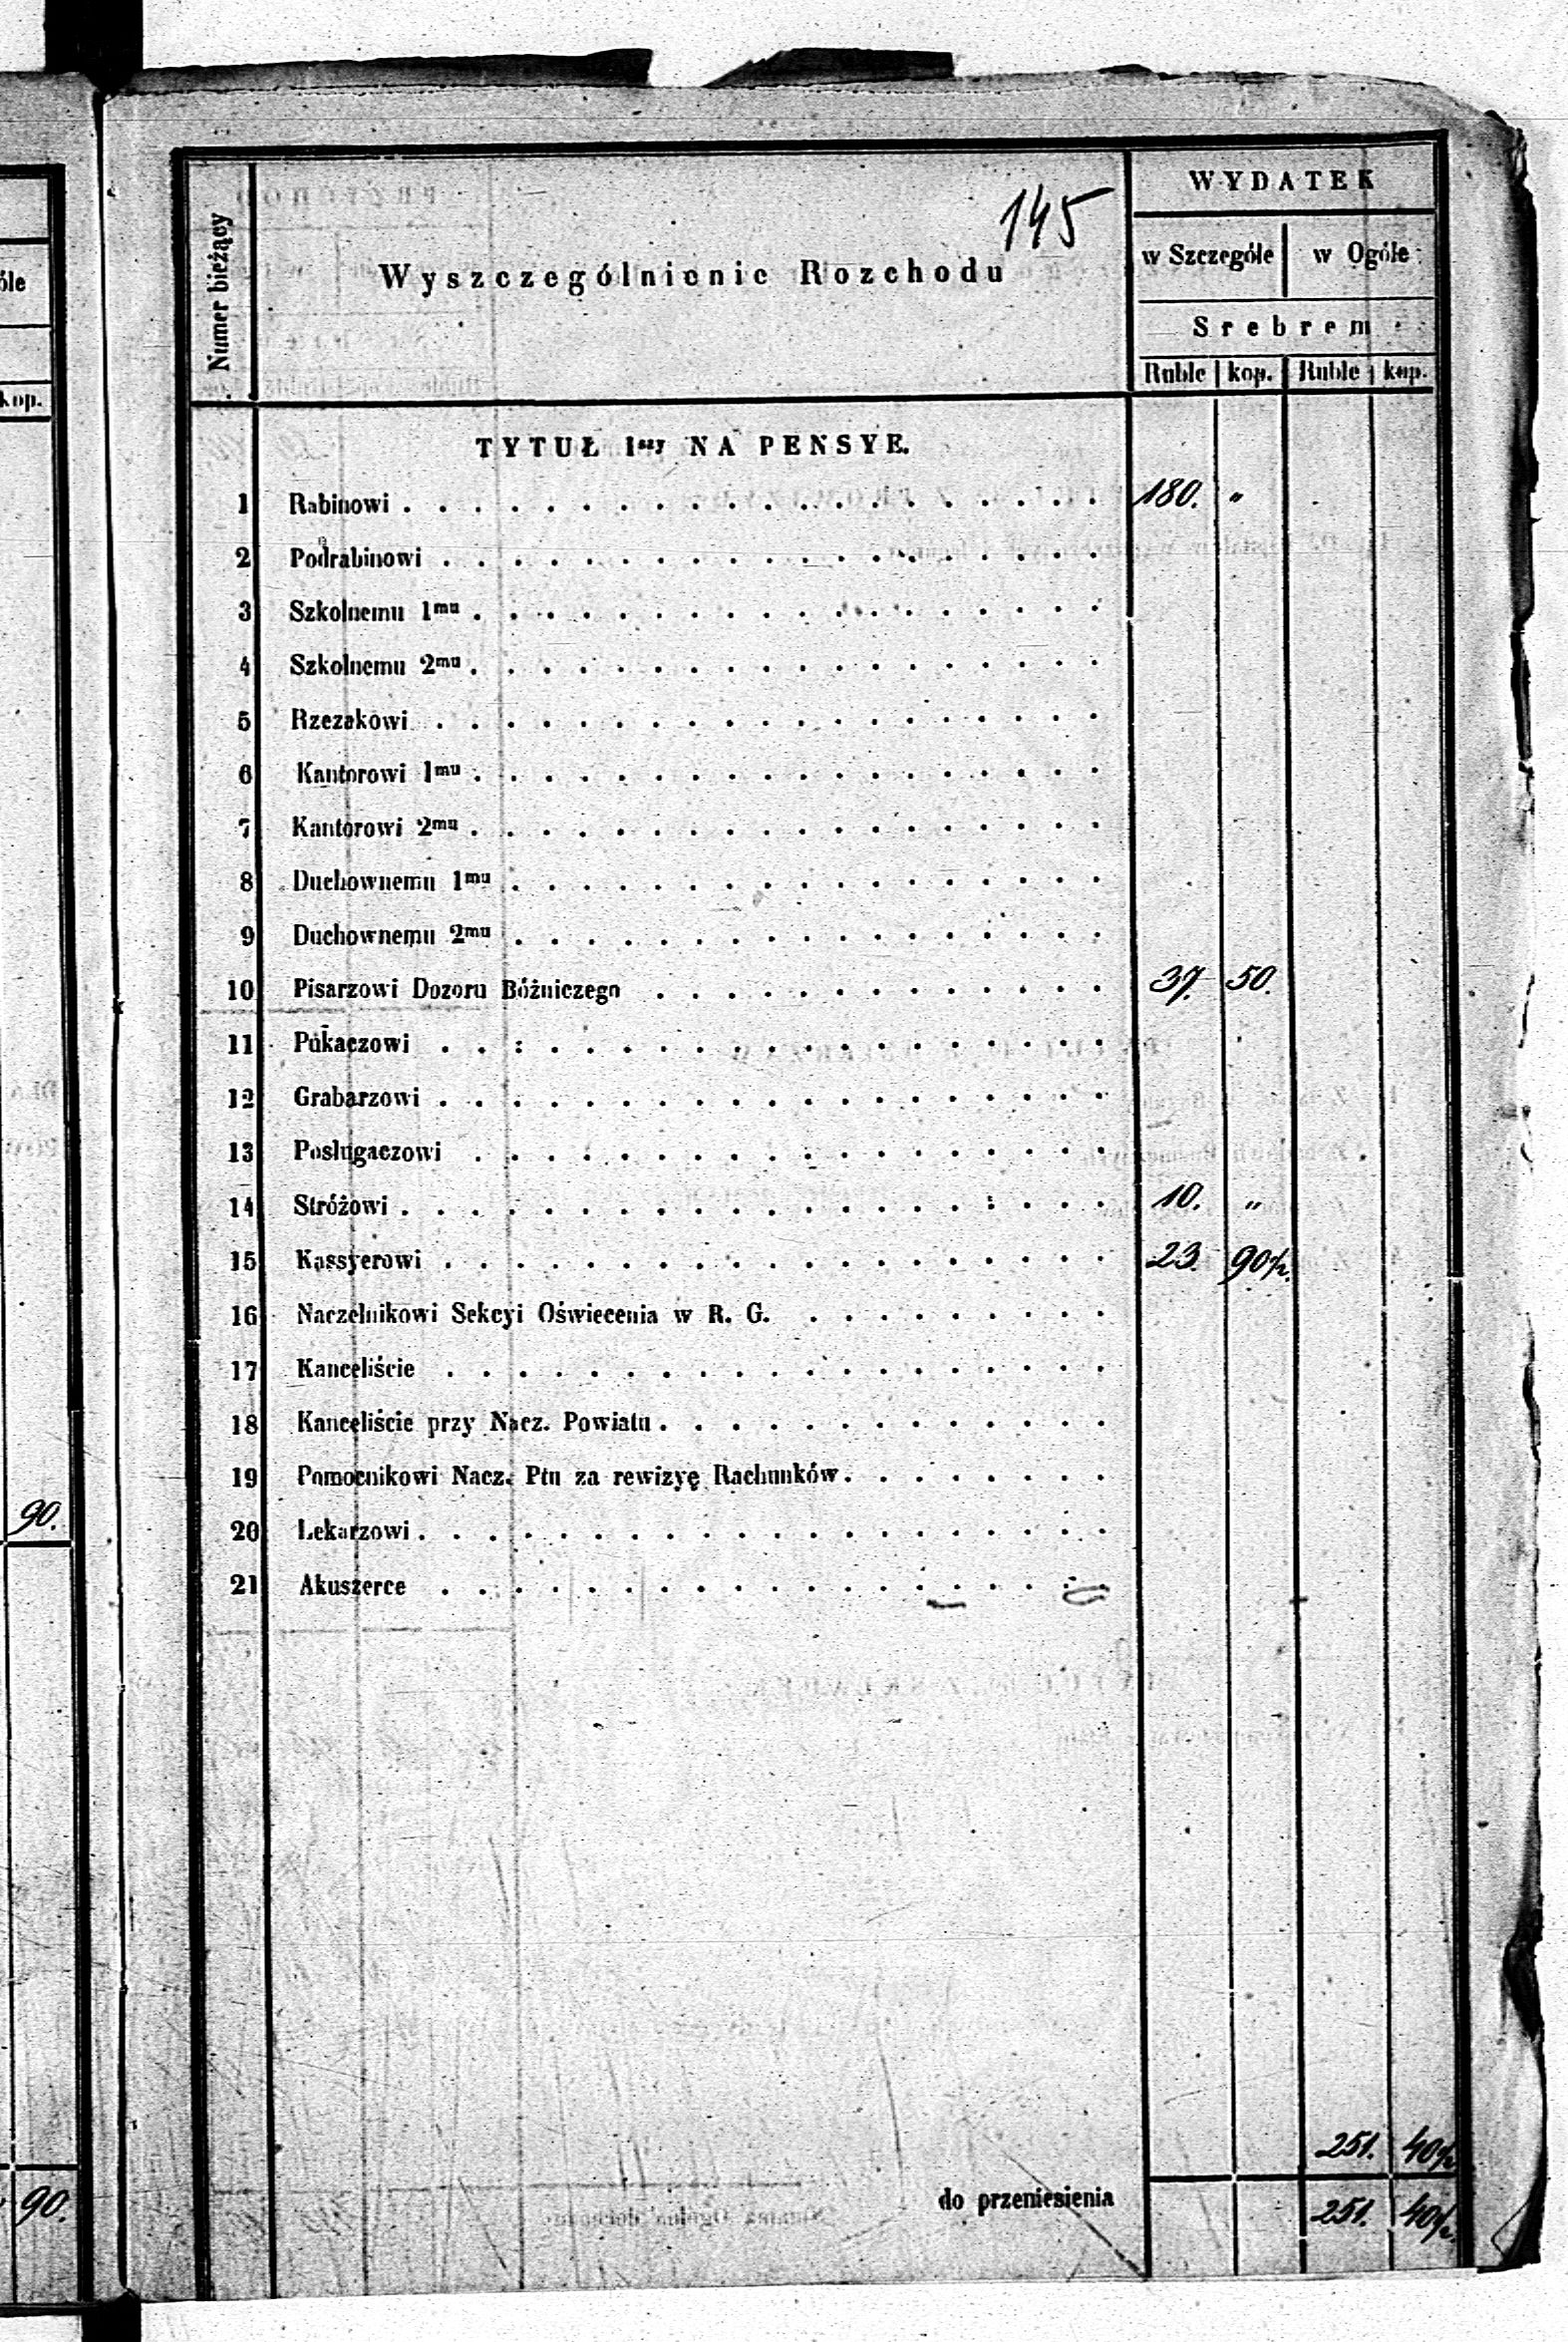 óle
kop.
90.
90.
145
Numer bieżący
Wyszczególnienie Rozchodu
WYDATEK
w Szczególe w Ogóle
Srebrem
Ruble kop. Ruble kop.
TYTUŁ 1szy NA PENSYE.
1 Rabinowi 180. "
2 Podrabinowi
3 Szkolnemu 1mu
4 Szkolnemu 2mu
5 Rzezakowi
6 Kantorowi 1mu
7 Kantorowi 2mu
8 Duchownemu 1mu
9 Duchownemu 2mu
10 Pisarzowi Dozoru Bóżniczego 37. 50.
11 Pukaczowi
12 Grabarzowi
13 Posługaczowi
14 Stróżowi 10. "
15 Kassyerowi 23. 90½.
16 Naczelnikowi Sekcyi Oświecenia w R. G.
17 Kanceliście
18 Kanceliście przy Nacz. Powiatu
19 Pomocnikowi Nacz. Ptu za rewizyę Rachunków
20 Lekarzowi
21 Akuszerce
251. 40½
do przeniesienia 251. 40½.